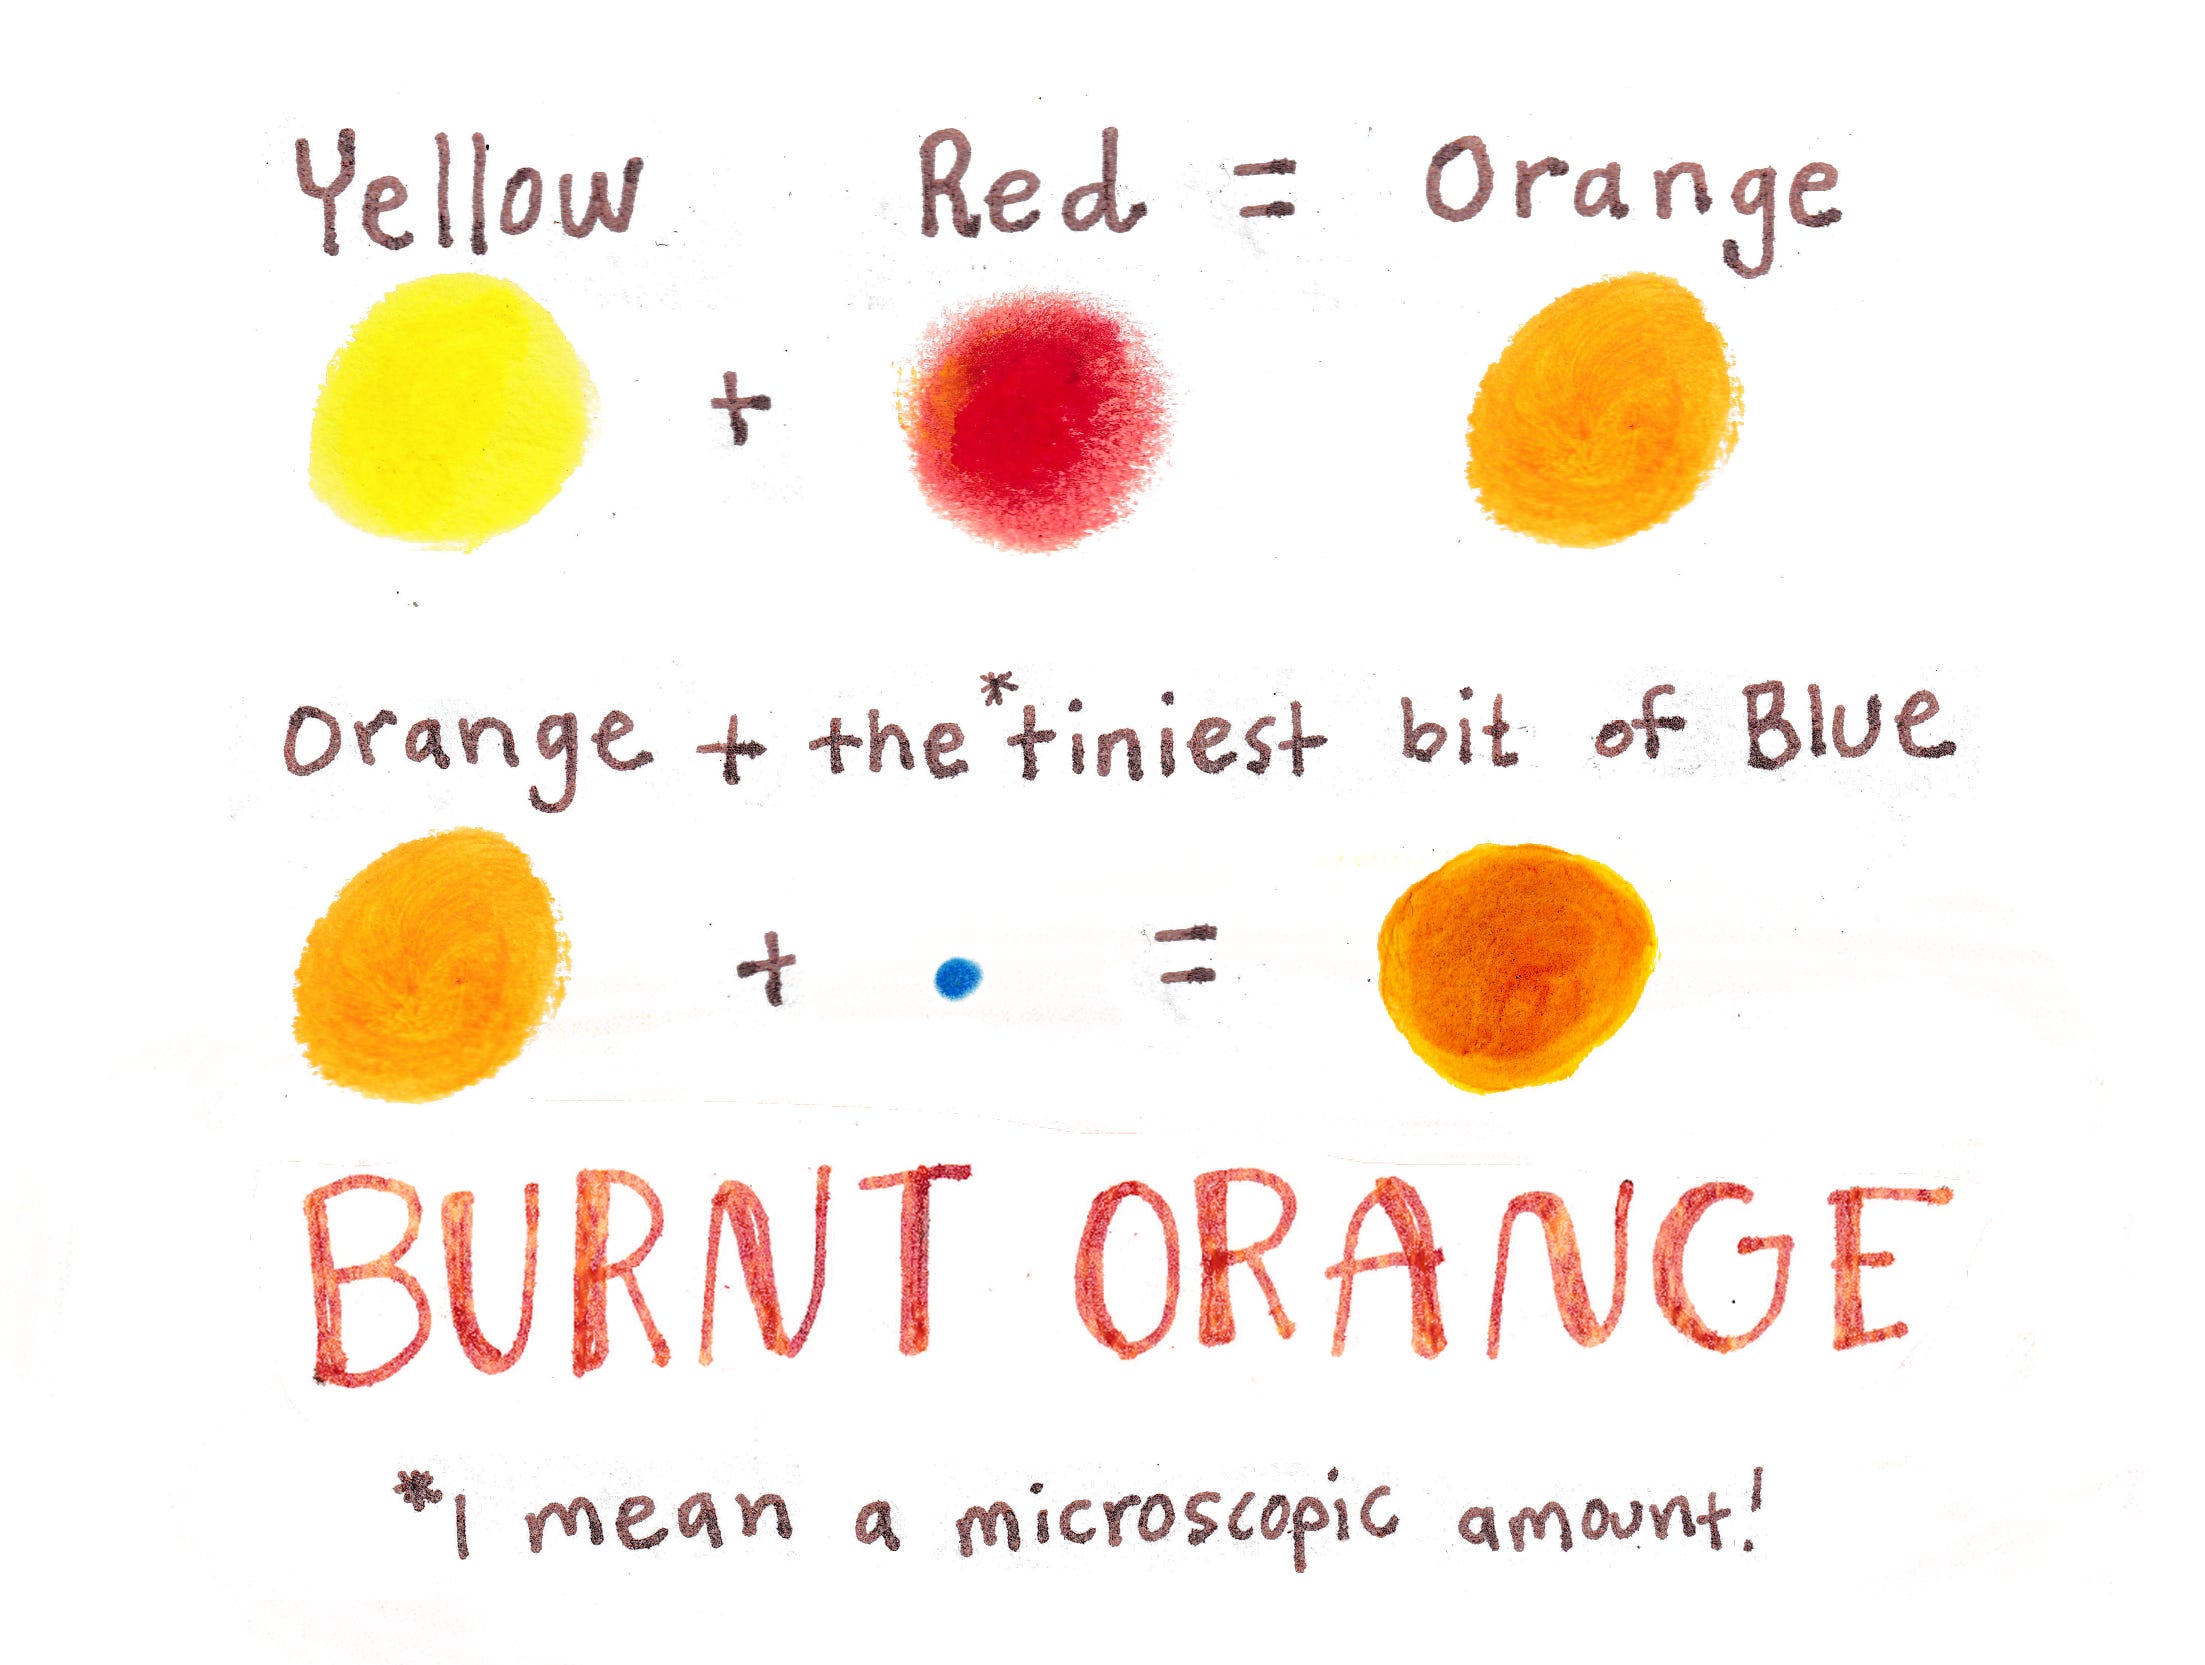 Yellow Red = Orange
+
Orange + the *tiniest bit of Blue
+ =
BURNT ORANGE
*I mean a microscopic amount!